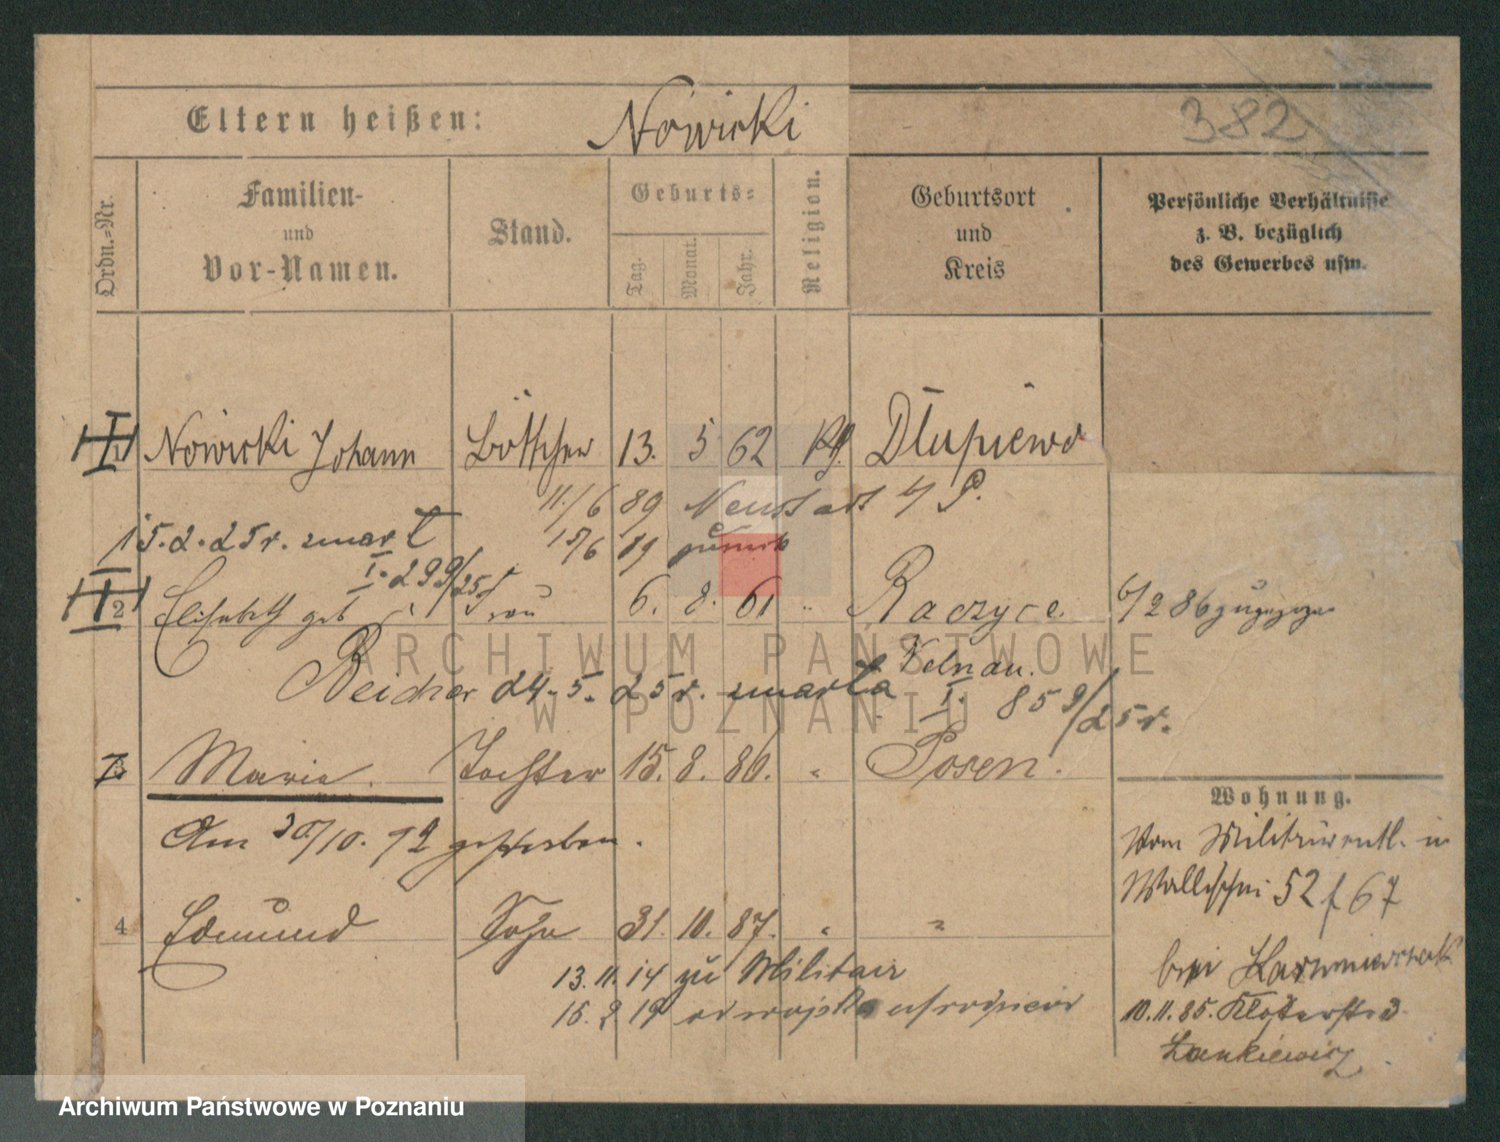 Eltern heißen: Nowicki
382
Ordn.-Nr.
Familien-
und
Vor-Namen.
Stand.
Geburts-
Tag.
Monat.
Jahr.
Religion.
Geburtsort
und
Kreis
Persönliche Verhältnisse
z. B. bezüglich
des Gewerbes usw.
1 Nowicki Johann Böttcher 13. 5 62 Dłupiewo
11/6 89 Neustadt P.
15.2.25 r. zmarł 15/6 19 zurück
I. 299/25
2 Elisabeth geb. Frau 6. 8. 61 " Raczyce. 6/2 86 zugezogen
Beicher 24.5.25 r. zmarła
I. 859/25 r.
3 Marie. Tochter 15. 8. 86. " Posen.
Am 30/10. 92 gestorben.
4 Edmund Sohn 31. 10. 87. " "
13.11.14 zu Militair
15.2.19 od wojska
Wohnung.
Vom Militär entl. in
Wallischei 52 f 67
bei
10.11.85. Klosterstr 3
Lankiewicz
ARCHIWUM PAŃSTWOWE
W POZNANIU
Archiwum Państwowe w Poznaniu